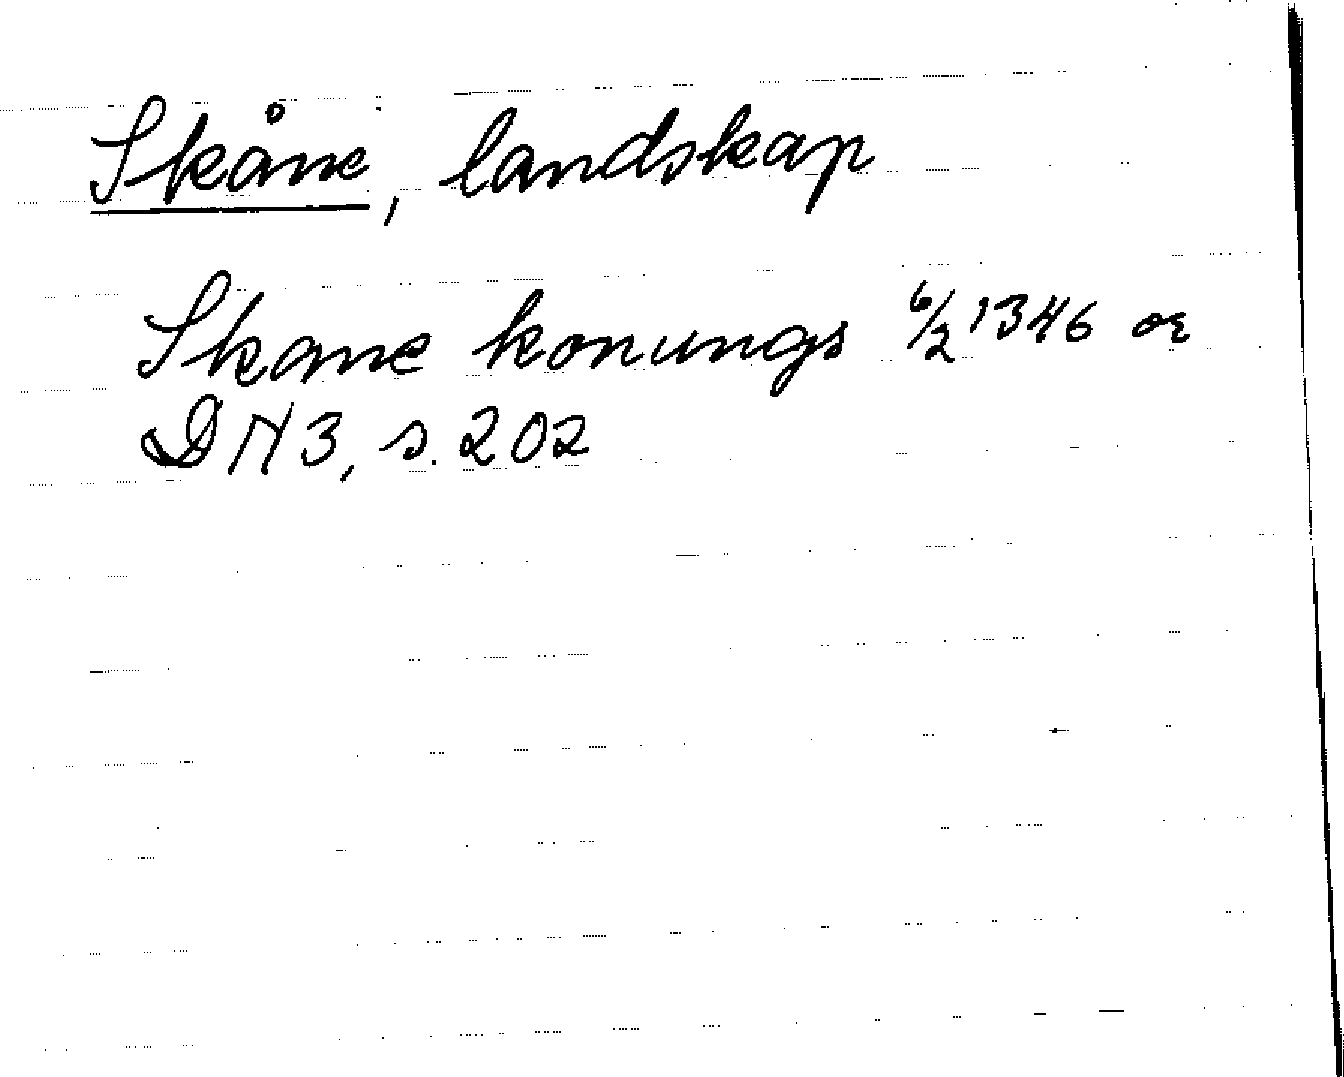 Skåne, landskap
Skane konungs 6/2 1346 or
DN 3, s. 202